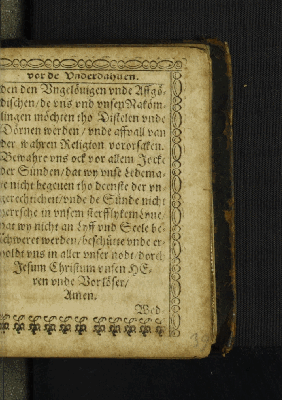 vor de Vnderdanen.
den den Vngelöuigen vnde Affgö-
dischen / de vns vnd vnsen Naköm-
lingen möchten tho Distelen vnde
Dörnen werden / vnde affvall van
der wahren Religion vororsaken.
Bewahre vns ock vor allem Jocke
der Sünden / dat wy vnse Ledema-
te nicht begeuen tho deenste der vn-
gerechticheit / vnde de Sünde nicht
herrsche in vnsem sterfflykem Lyue /
dat wy nicht an Lyff vnd Seele be-
schweret werden / beschütte vnde er-
holdt vns in aller vnser nodt / dorch
Jesum Christum vnsen HE-
ren vnde Vorlöser /
Amen.
Wed-